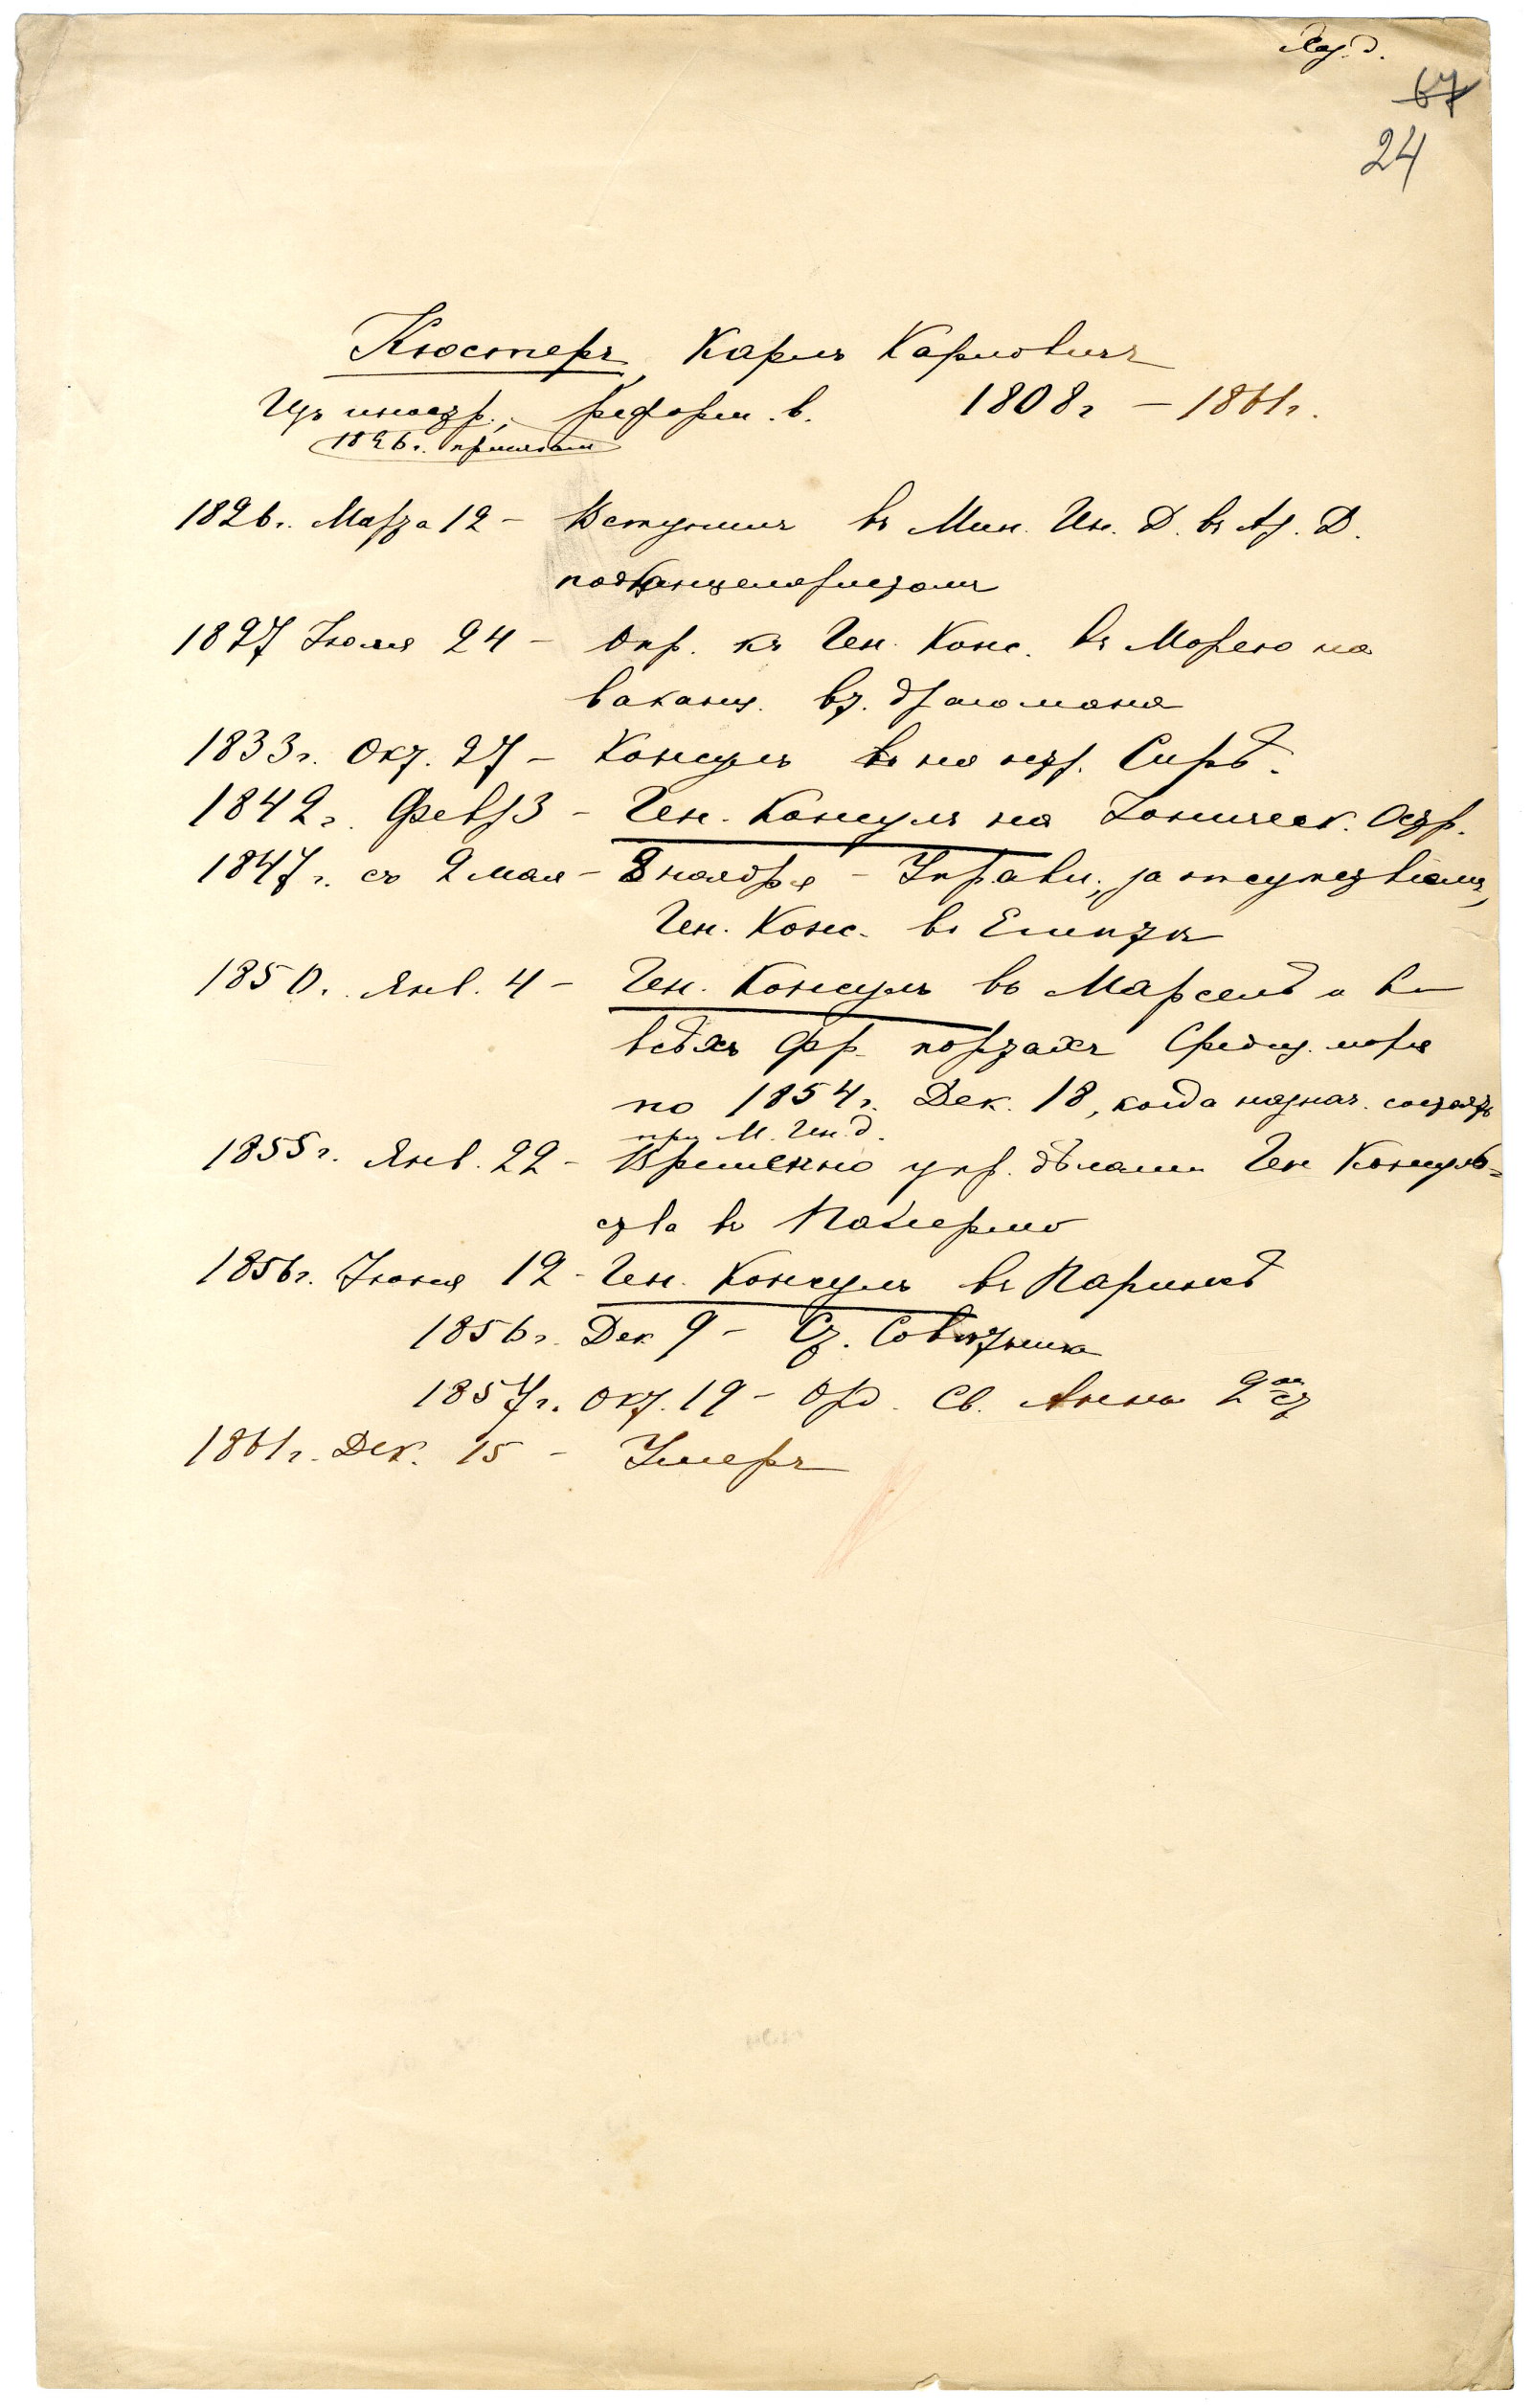 67
24
Кюстеръ, Карлъ Карловичъ
Изъ иностр., реформ. в. 1808 г – 1861 г.
1826 г. присягалъ
1826 г. Марта 12 – Вступилъ въ Мин. Ин. Д. въ Аз. Д.
подканцеляристомъ
1827 Іюля 24 – Опр. къ Ген. Конс. въ Морею на
ваканц. вт. драгомана
1833 г. Окт. 27 – Консулъ на остр. Сирѣ.
1842 г. Февр 3 – Ген. Консулъ на Іоническ. Остр.
1847 г. съ 2 мая – 8 ноября – Управл., за отсутствіемъ,
Ген. Конс. въ Египтѣ
1850. Янв. 4 – Ген. Консулъ въ Марселѣ и во
всѣхъ Фр. портахъ Средиз. моря
по 1854 г. Дек. 18, когда назнач. состоять
при М. Ин. д.
1855 г. Янв. 22 – Временно упр. дѣлами Ген Консуль=
ства въ Палермо
1856 г. Іюня 12 – Ген. Консулъ въ Парижѣ
1856 г. Дек 9 – Ст. Совѣтника
1857 г. Окт. 19 – Орд. Св. Анны 2ой ст
1861 г. Дек. 15 – Умеръ